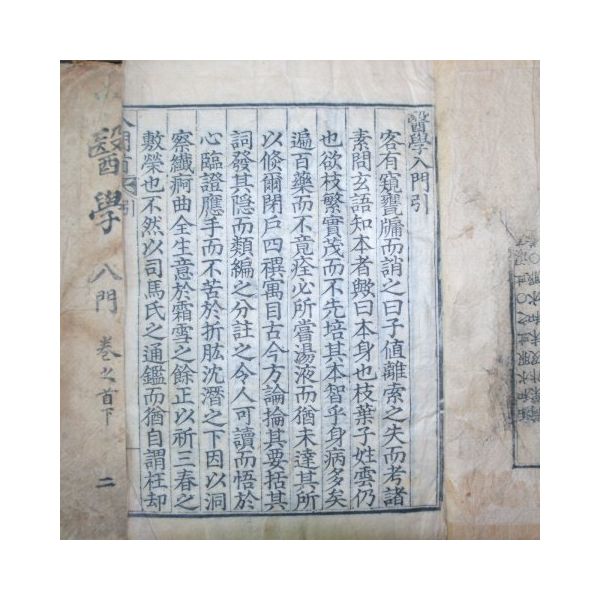 醫學入門引
客有窺甕牖而誚之曰子值離索之失而考諸
素問玄語知本者歟曰本身也枝葉子姓雲仍
也欲枝繁實茂而不先培其本智乎身病多矣
遍百藥而不竟痊必所嘗湯液而猶未達其所
以倏爾閉戶四禩寓目古今方論掄其要括其
詞發其隱而類編之分註之令人可讀而悟於
心臨證應手而不苦於折肱沈潛之下因以洞
察纖痾曲全生意於霜雪之餘正以祈三春之
敷榮也不然以司馬氏之通鑑而猶自謂枉却
醫學
入門
卷之首下
二